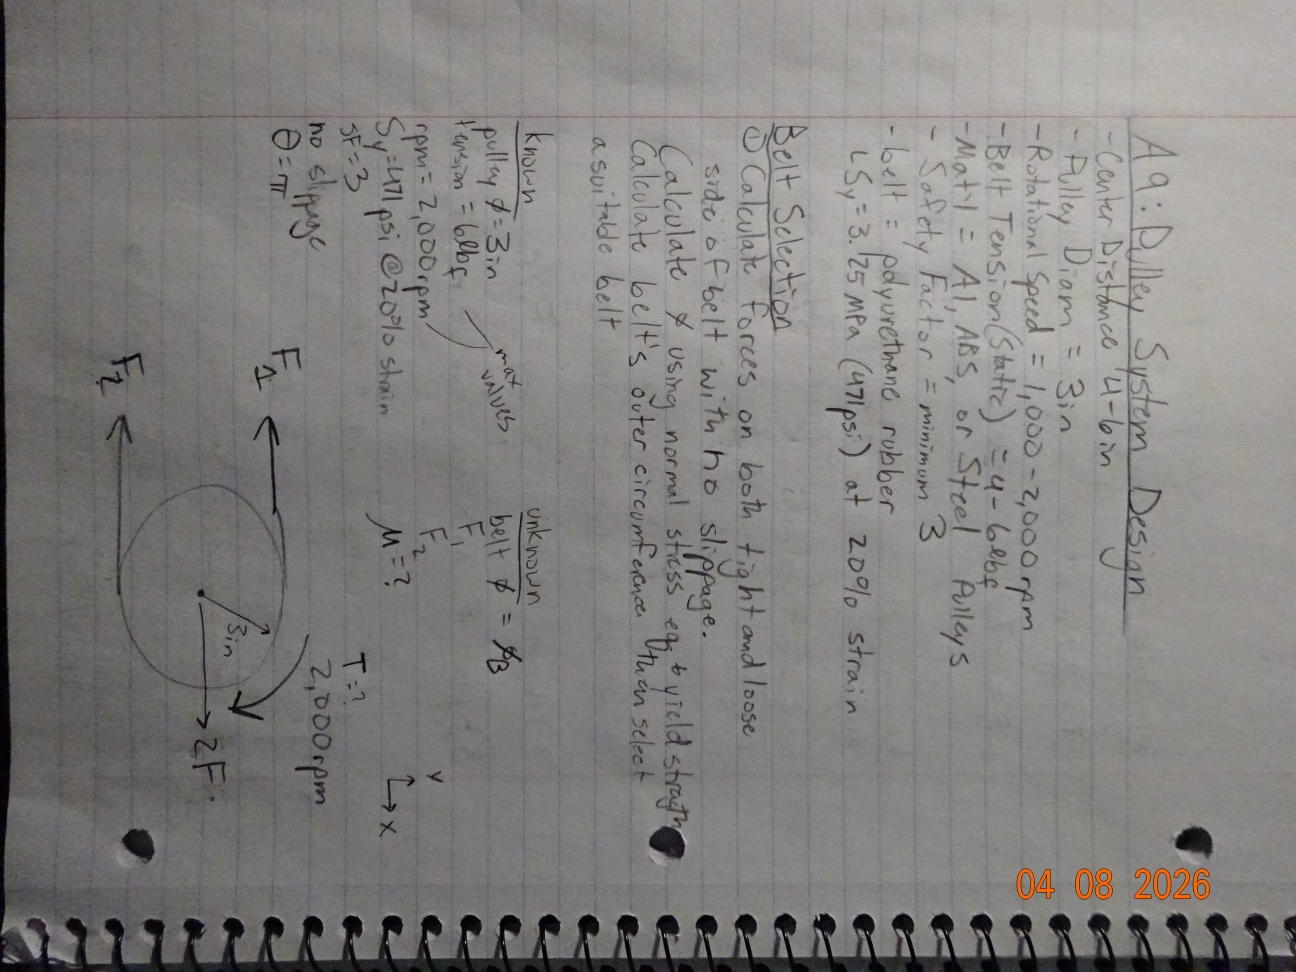 A9: Pulley System Design
- Center Distance 4-6in
- Pulley Diam = 3in
- Rotational Speed = 1,000-2,000rpm
- Belt Tension (Static) = 4-6lbf
- Mat'l = Al, ABS, or Steel Pulleys
- Safety Factor = minimum 3
- belt = polyurethane rubber
↳Sy = 3.25 MPa (471psi) at 20% strain
Belt Selection
① Calculate forces on both tight and loose
side of belt with no slippage.
Calculate ⌀ using normal stress eq. & yield strength
Calculate belt's outer circumference then select
a suitable belt
known
pulley ⌀=3in
tension = 6lbf
rpm = 2,000rpm
max
values
Sy=471psi @20% strain
SF=3
no slippage
θ=π
unknown
belt ⌀ = ⌀B
F1
F2
μ=?
F1
F2
3in
2F
T=?
2,000rpm
y
x
04 08 2026